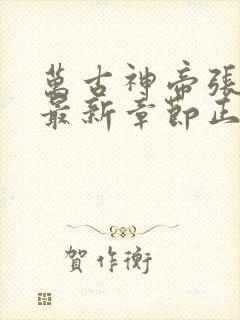 萬古神帝張
最新章節正
賀作衡